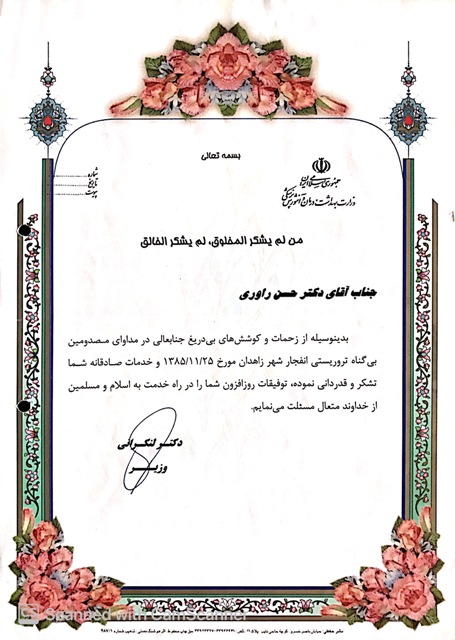 بسمه تعالی
جمهوری اسلامی ایران
وزارت بهداشت، درمان و آموزش پزشکی
شماره
تاریخ
پیوست
من لم یشکر المخلوق، لم یشکر الخالق
جناب آقای دکتر حسن راوری
بدینوسیله از زحمات و کوشش‌های بی‌دریغ جنابعالی در مداوای مصدومین
بی‌گناه تروریستی انفجار شهر زاهدان مورخ ۱۳۸۵/۱۱/۲۵ و خدمات صادقانه شما
تشکر و قدردانی نموده، توفیقات روزافزون شما را در راه خدمت به اسلام و مسلمین
از خداوند متعال مسئلت می‌نمایم.
دکتر لنکرانی
وزیر
Scanned with CamScanner